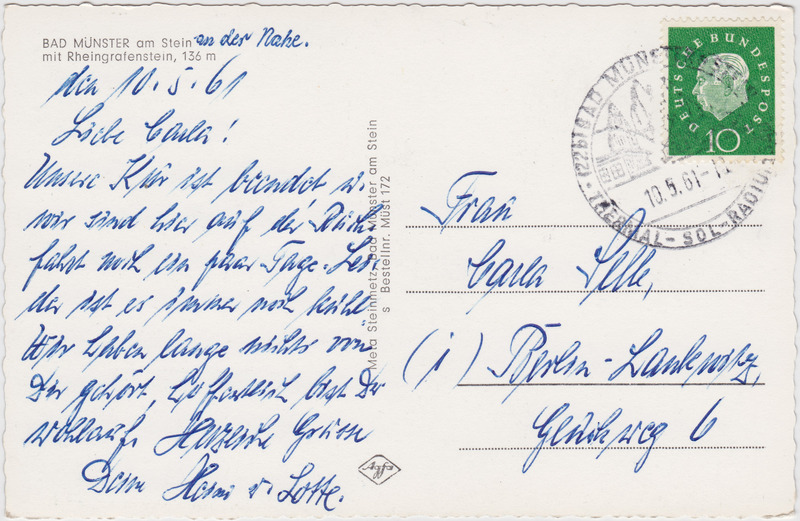 BAD MÜNSTER am Stein an der Nahe.
mit Rheingrafenstein, 136 m
den 10.5.61
Liebe Carla!
Unsere Kur ist beendet, u.
wir sind hier auf der Rück
fahrt noch ein paar Tage. Lei-
der ist es immer noch kühl
Wir haben lange nichts von
Dir gehört, hoffentlich bist Du
wohlauf. Herzliche Grüsse
Deine Hanni u. Lotte.
Meta Steinmetz, Bad Münster am Stein
s Bestellnr. Müst 172
Agfa
DEUTSCHE BUNDESPOST
10
(22b) BAD MÜNSTER
10.5.61-
THERMAL-SOL-RADIUM
Frau
Carla Selle,
(1) Berlin-Lankwitz,
Glückweg 6